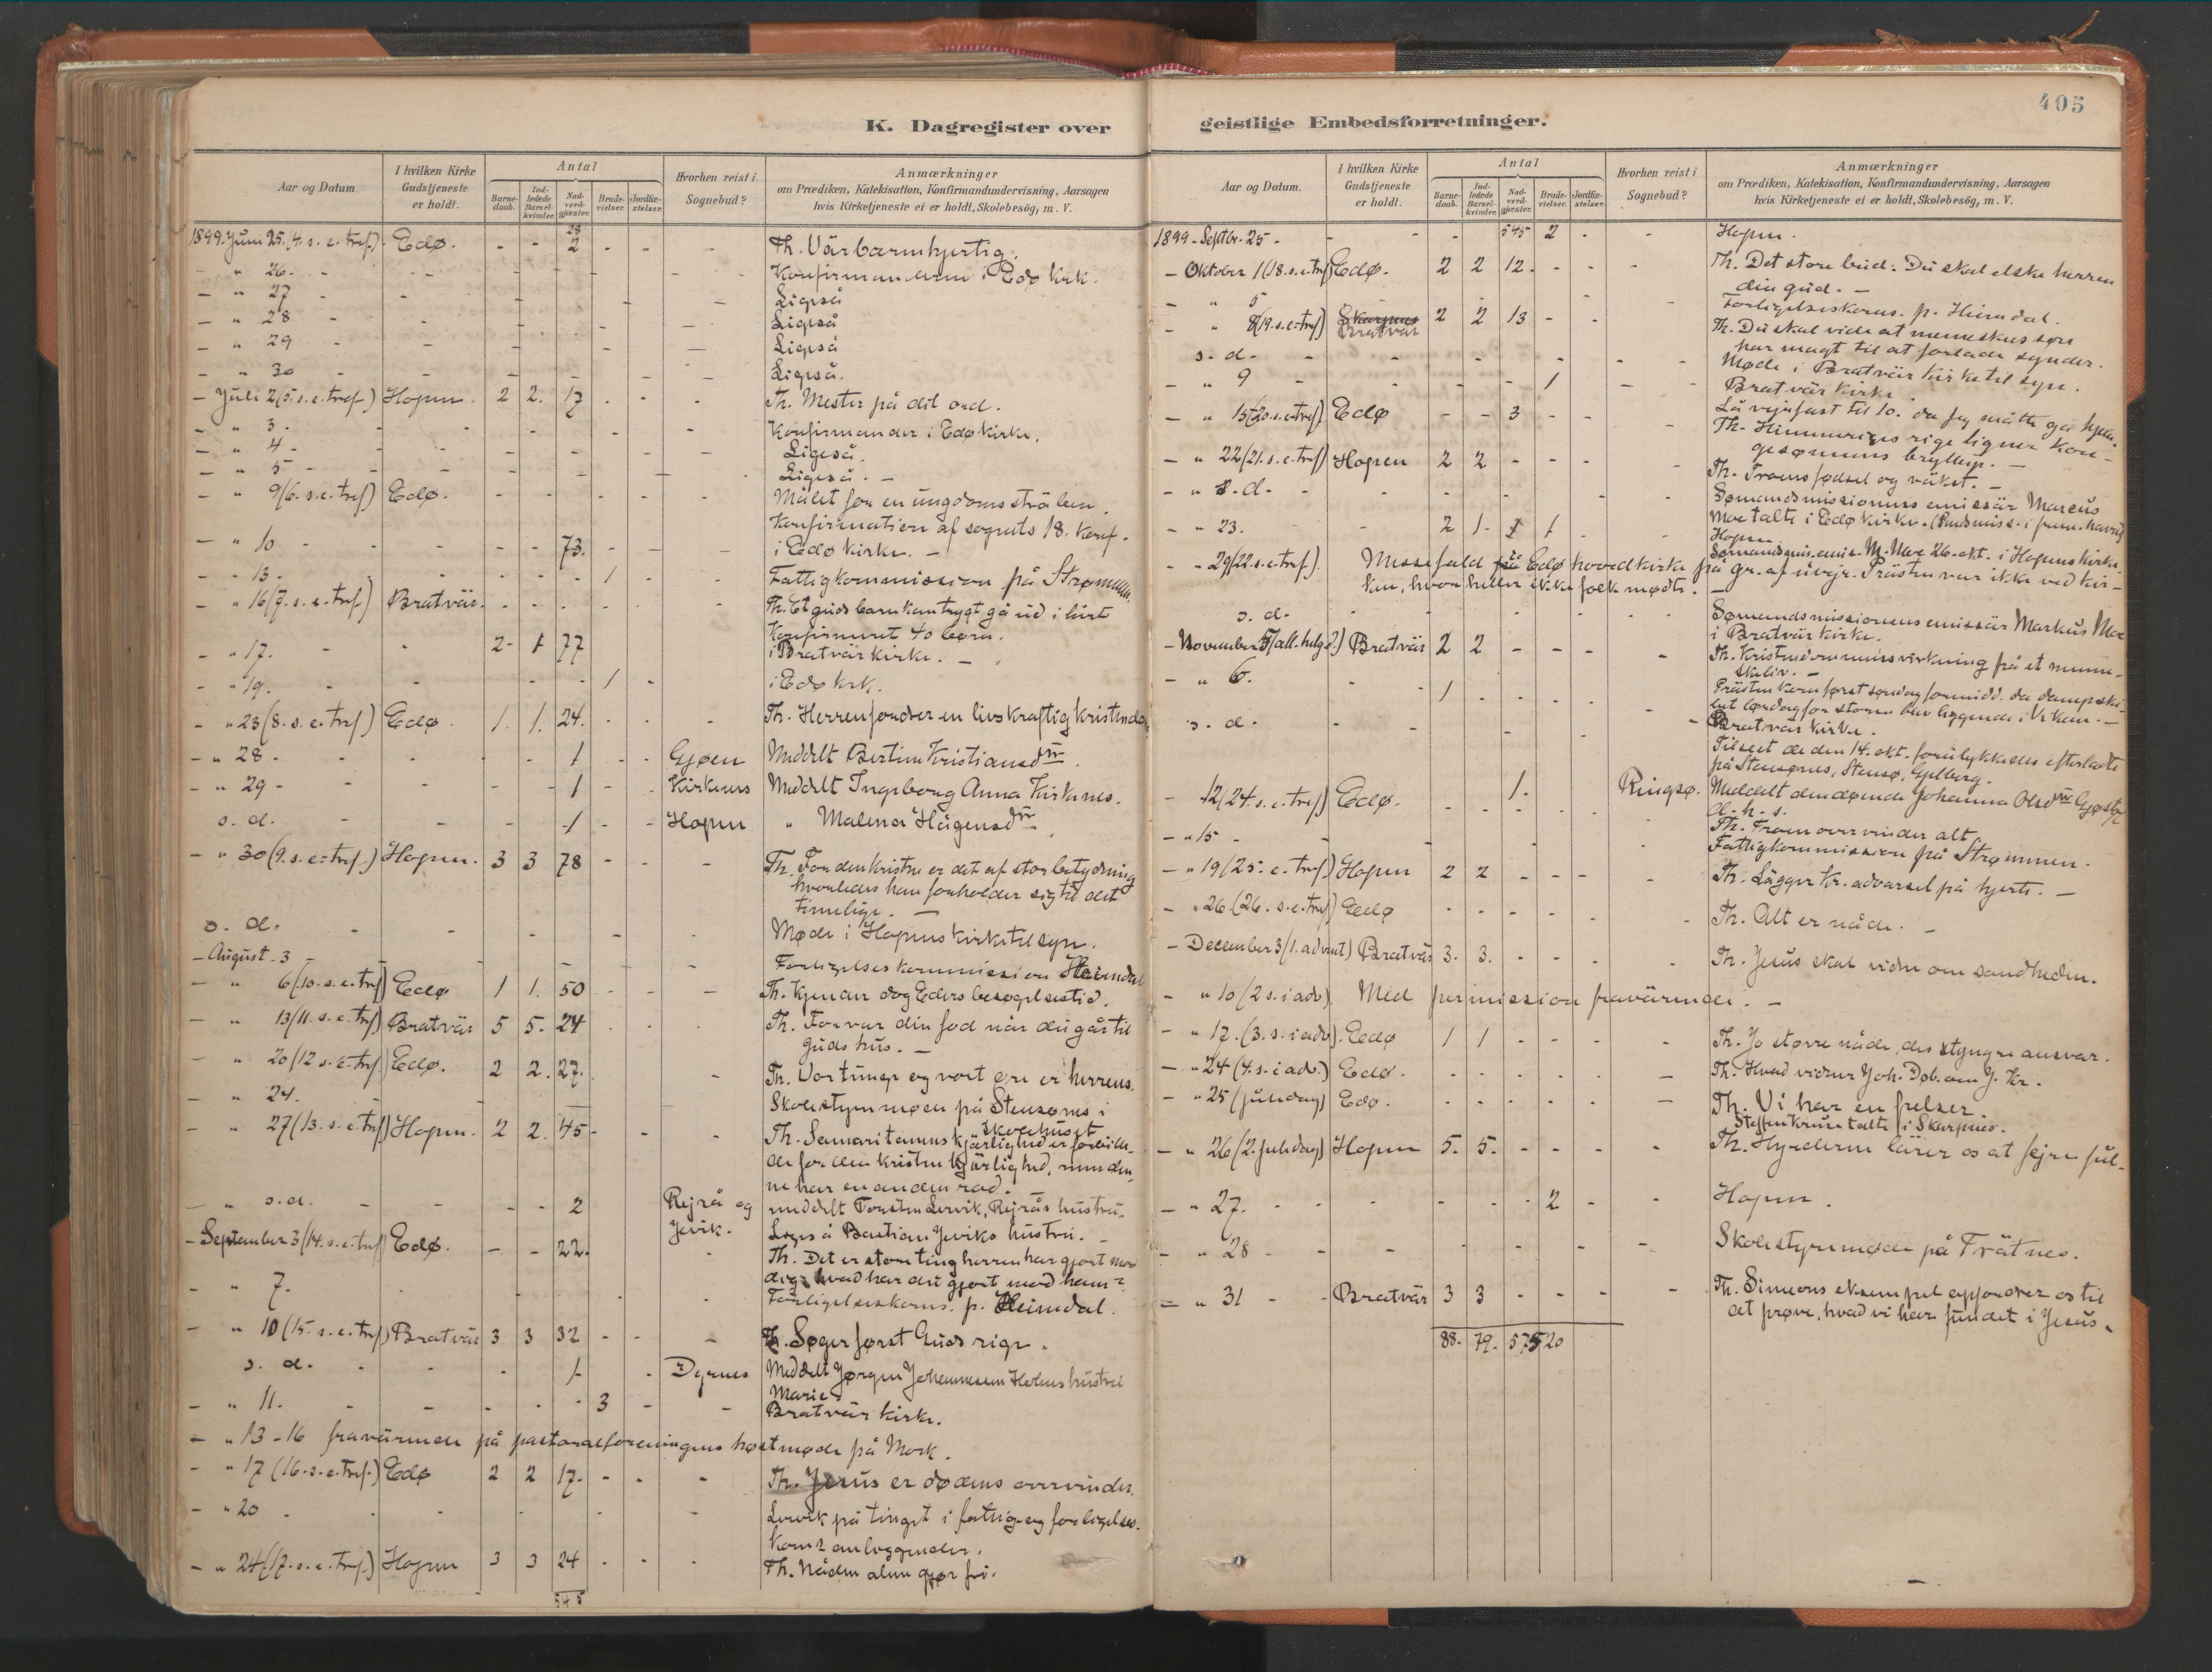 405
K. Dagregister over
geistlige Embedsforretninger.
Aar og Datum.
I hvilken Kirke Gudstjeneste er holdt.
Antal
Barnedaab.
Indledede Barselkvinder.
Nadverdgjæster.
Brudevielser.
Jordfæstelser.
Hvorhen reist i Sognebud?
Anmærkninger
om Prædiken, Katekisation, Konfirmandundervisning, Aarsagen
hvis Kirketjeneste ei er holdt, Skolebesög, m. V.
28
1899. Juni 25. (4. s. e. tref.). Edø. - - 2 - - - Th. Vär barmhjertig.
- " 26. - - - Konfirmanderne i Edø kirk.
- " 27 - - - Ligeså
- " 28 - - - Ligeså
- " 29 - - - Ligeså
- " 30 - - - Ligeså.
- Juli 2 (5. s. e. tref.) Hopen. 2 2. 17 - - - Th. Mester på dit ord.
- " 3. - - - Konfirmander i Edø kirke.
- " 4. - - - Ligeså.
- " 5 - - - Ligeså. -
- " 9 (6. s. e. tref) Edø. - - - Målet for en ungdoms stræben.
Konfirmation af sognets 18. konf.
- " 10 - - - 73. - - - i Edø kirke. -
- " 13. - - - 1 - Fattigkommission på Strømmen.
- " 16 (7. s. e. tref) Bratvär. - - - Th. Et guds barn kan trygt gå ud i livet
Konfirmeret 40 børn.
- " 17. - - 2 - 1 77 i Bratvär kirke. -
- " 19. - - - 1 - i Edø kirk.
- " 23 (8. s. e. tref) Edø. 1. 1. 24. - - - Th. Herren fordrer en livskraftig kristendom
- " 28. - - - 1 - - Gjøen Meddelt Bertine Kristiansdtr.
- " 29 - - - 1 - Kirknes Meddelt Ingeborg Anna Kirknes.
s. d. - - - 1 - - Hopen " Malena Hågensdtr.
- " 30 (9. s. e. tref.) Hopen. 3 3 78 - - - Th. For den kristne er det af stor betydning
hvorledes han forholder sig til det
timelige. -
s. d. - - - Møde i Hopens kirketilsyn.
- August. 3 - - - Forligelseskommission Heimdal
- " 6 (10. s. e. tref) Edø 1 1. 50 - - - Th. Kjender dog Eders besøgelsestid.
- " 13 (11. s. e. tref) Bratvär 5 5. 24 - - - Th. Forvar din fod når du går til
Guds hus. -
- " 20 (12 s. e. tref.) Edø. 2 2. 27. - Th. Vor tunge og vort øre er herrens.
- " 24. Skolestyremøde på Stensønes i
Skolehuset
- " 27 (13. s. e. tref) Hopen. 2 2. 45 - - - Th. Samaritanens kjärlighed er forbille-
de for den kristne kjärlighed, men den-
ne har en anden rod. -
- " s. d. - - - 2 Rejrå og meddelt Torsten Lervik, Rejrås hustru.
Jevik. Ligeså Bastian Jeviks hustru. -
- September 3 (14. s. e. tref) Edø. - - 22. - Th. Det er store ting herren har gjort mod
dig; hvad har du gjort mod ham?
- " 7. - - - Forligelseskoms. p. Heimdal.
- " 10 (15. s. e. tref) Bratvär 3 3 32 - - - Th. Søger først Guds rige.
s. d. - - - 1 - Dyrnes Meddelt Jørgen Johannesen Holms hustru
Marie
- " 11. - - - 3 - - Bratvär kirke.
- " 13 - 16 fravärende på pastoralforeningens høstmøde på Mork.
- " 17 (16. s. e. tref.) Edø 2 2 17. - - - Th. Jesus er dødens overvinder.
- " 20 - - - Lervik på tinget i fattig- og forligelses-
koms anliggender.
- " 24 (17. s. e. tref.) Hopen 3 3 24 - - - Th. Nåden alene gjør fri.
545
Aar og Datum.
I hvilken Kirke Gudstjeneste er holdt.
Antal
Barnedaab.
Indledede Barselkvinder.
Nadverdgjæster.
Brudevielser.
Jordfæstelser.
Hvorhen reist i Sognebud?
Anmærkninger
om Prædiken, Katekisation, Konfirmandundervisning, Aarsagen
hvis Kirketjeneste ei er holdt, Skolebesög, m. V.
1899 - Septbr. 25 - - - 545 2 - - Hopen.
- Oktober 1 (18. s. e. tref) Edø. 2 2 12. - - - Th. Det store bud: Du skal elske herren
din gud. -
- " 5 - - - Forligelseskoms. p. Heimdal.
- " 8 (19. s. e. tref) Skarpnes Bratvär 2 2 13 - - Th. Du skal vide at menneskens søn
har magt til at forlade synder.
s. d. - - - Møde i Bratvär kirketilsyn.
- " 9 - - - 1 - - Bratvär kirke.
Lå vejrfast til 10. da jeg måtte gå hjem.
- " 15 (20. s. e. tref). Edø - - 3 - - Th. Himmeriges rige ligner kon-
gesønnens bryllup. -
- " 22 (21. s. e. tref) Hopen 2 2 - - - Th. Troens fødsel og väkst. -
- " s. d. - - - Sømandsmissionens emissär Marcus
Moe talte i Edø kirke.
- " 23. 2 1. 1 1 - Hopen.
Sømandsmis. emis. M. Moe 26. okt. i Hopens kirke.
- " 29 (22. s. e. tref). Messefald på Edø hovedkirke på gr. af uvejr. Prästen var ikke ved kir-
ken, hvor heller ikke folk mødte. -
s. d. - - - Sømandsmissionens emissär Markus Moe
i Bratvär kirke.
- November 5 (all. helg. d.) Bratvär 2 2 - - - - Th. Kristendommens virkning på et menne-
skeliv. -
Prästen kom først søndag formidd. da dampski-
bet lørdag for storm blev liggende i Viken. -
- " 6. - - 1 - - - Bratvär kirke.
s. d. - - - Tilseet de den 14. okt. forulykkedes efterladte
på Stensønes, Stensø, Gjelberg.
- 12 (24. s. e. tref) Edø. - - 1. Ringsø. Meddelt den døende Johanna Olsdtr
d. h. s.
Th. Troen overvinder alt.
- " 15 - - - Fattigkommission på Strømmen.
- " 19 (25. e. tref.) Hopen 2 2 - - - - Th. Lägger Kr. advarsel på hjerte. -
- " 26. (26. s. e. tref) Edø - - - Th. Alt er nåde. -
- December 3 (1. advent) Bratvär 3. 3. - - - - Th. Jesus skal vidne om sandheden.
- " 10 (2 s. i adv). Med permission fravärende. -
- " 17. (3. s. i adv). Edø 1 1 - - - - Th. Jo større nåde, des tyngre ansvar.
- " 24 (4. s. i adv.) Edø. - - - Th. Hvad vidner Joh. Døb. om J. Kr.
- " 25 (juledag) Edø. - - - Th. Vi har en frelser.
Steffen Kruse talte i Skarpnes.
- " 26 (2. juledag) Hopen 5. 5. - - - - Th. Hyrderne lärer os at fejre jul.
- " 27. - - - 2 - - Hopen.
- " 28 - - - Skolestyremøde på Trätnes.
- " 31 - - Bratvär 3 3 - - - - Th. Simeons eksempel opfordrer os til
at prøve, hvad vi har fundet i Jesus.
88. 79. 575 20